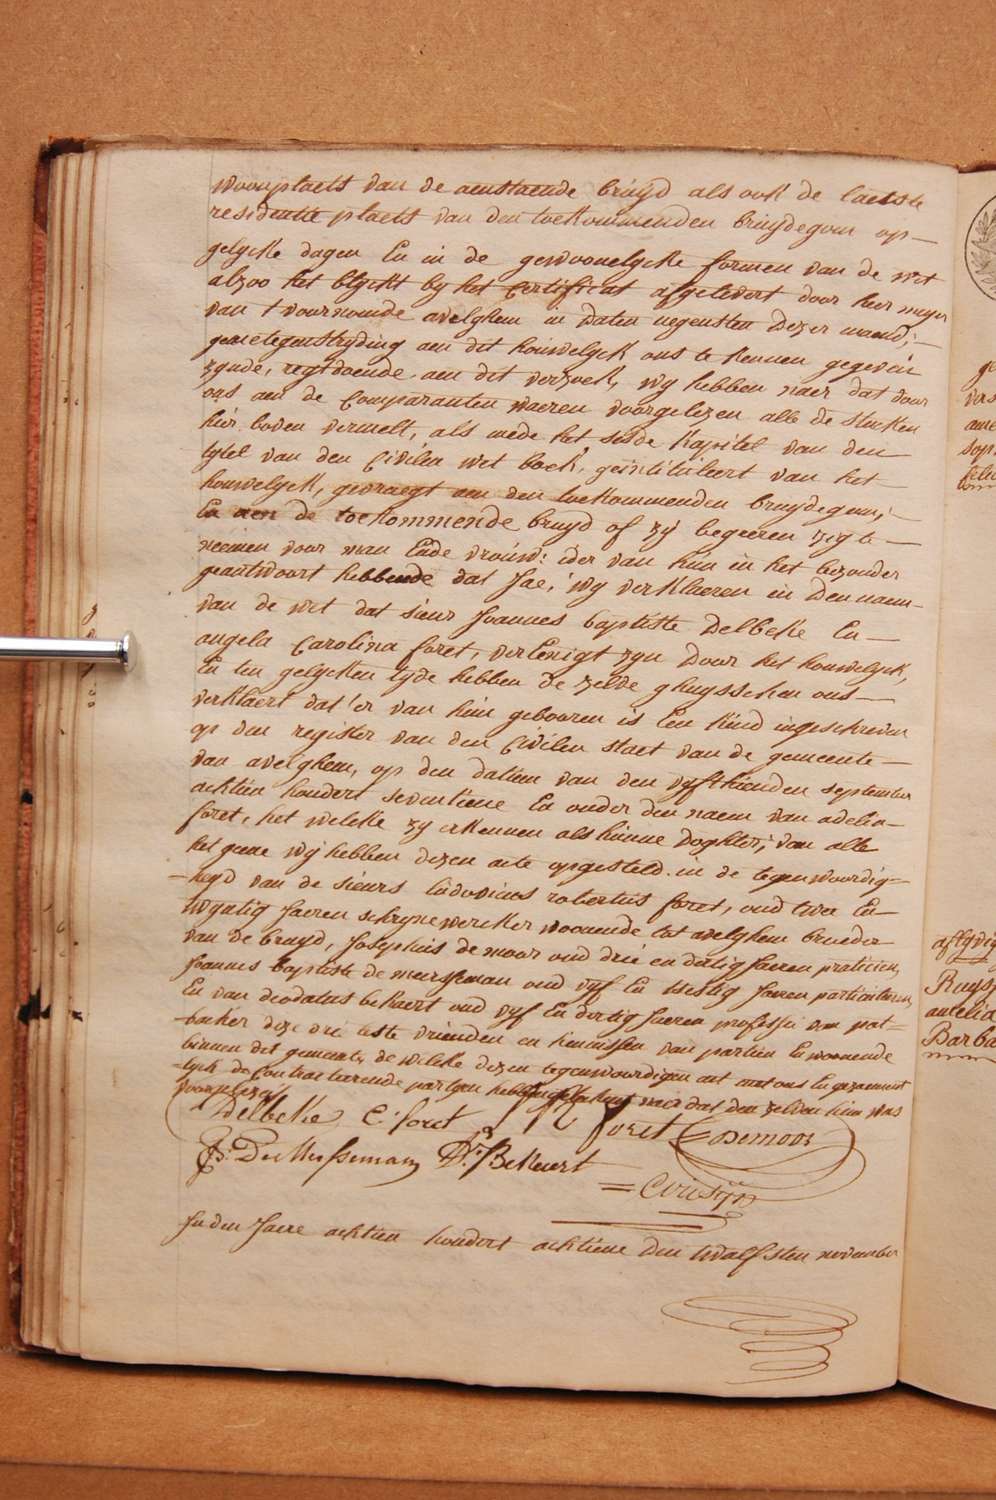 woonplaets van de aenstaende bruyd als ook de laetste
residentie plaets van den toekommenden bruydegom op
gelyke dagen en in de gewoonelycke formen van de wet
alzoo het blyckt by het certificat afgelevert door heer mayer
van t voornoemde avelghem in daten negensten dezer maend;
geene tegenstryding aen dit houwelyck ons te kennen gegeven
zynde, regtdoende aen dit verzoek, wy hebben naer dat door
ons aen de Comparanten waeren voorgelezen alle de stucken
hier boven vermelt, als mede het sesde kapitel van den
tytel van den Civilen wet boek, geintituleert van het
houwelyck, gevraegt aen den toekommenden bruydegom;
En aen de toekommende bruyd of zy begeeren zig te
neemen voor man Ende vrouw: ider van hun in het bezonder
geantwoort hebbende dat Jae, wy verklaeren in den naem
van de wet dat sieur Joannes baptiste Delbeke En
angela Carolina foret, verEenigt zyn door het houwelyck,
En ten gelycken tyde hebben de zelve ghuysschen ons
verklaert dat 'er van hun gebooren is Een kind ingeschreven
op den register van den Civilen staet van de gemeente
van avelghem, op den datum van den vyfthienden september
achtien hondert seventiene En onder den naem van adelia
foret, het welcke zy erkennen als hunne doghter; van alle
het geene wy hebben dezen acte opgesteld in de tegenwoordig-
-heyd van de sieurs ludovicus robertus foret, oud twee En
twyntig Jaeren schrynewercker woonende tot avelghem broeder
van de bruyd, Josephus de moor oud drie en dertig Jaeren praticien,
Joannes baptiste de meersseman oud vyf En sestig Jaeren particulieren
En van deodatus bekaert oud vyf En dertig Jaeren professie van pot-
-backer deze drie leste vrienden en kennissen van partien En woonende
binnen dit gemeente de welcke dezen tegenwoordigen act met ons En gezament
-lyck de Contracteerende partyen hebben geteekent naer dat den zelven hun was
voorgelezen
Delbeke C: foret foret Demoor
De Mersseman D: Bekaert
In den Jaere achtien hondert achtiene den twalfsten november
ge
vers
ame
sop
Ruys
amelia
Barba